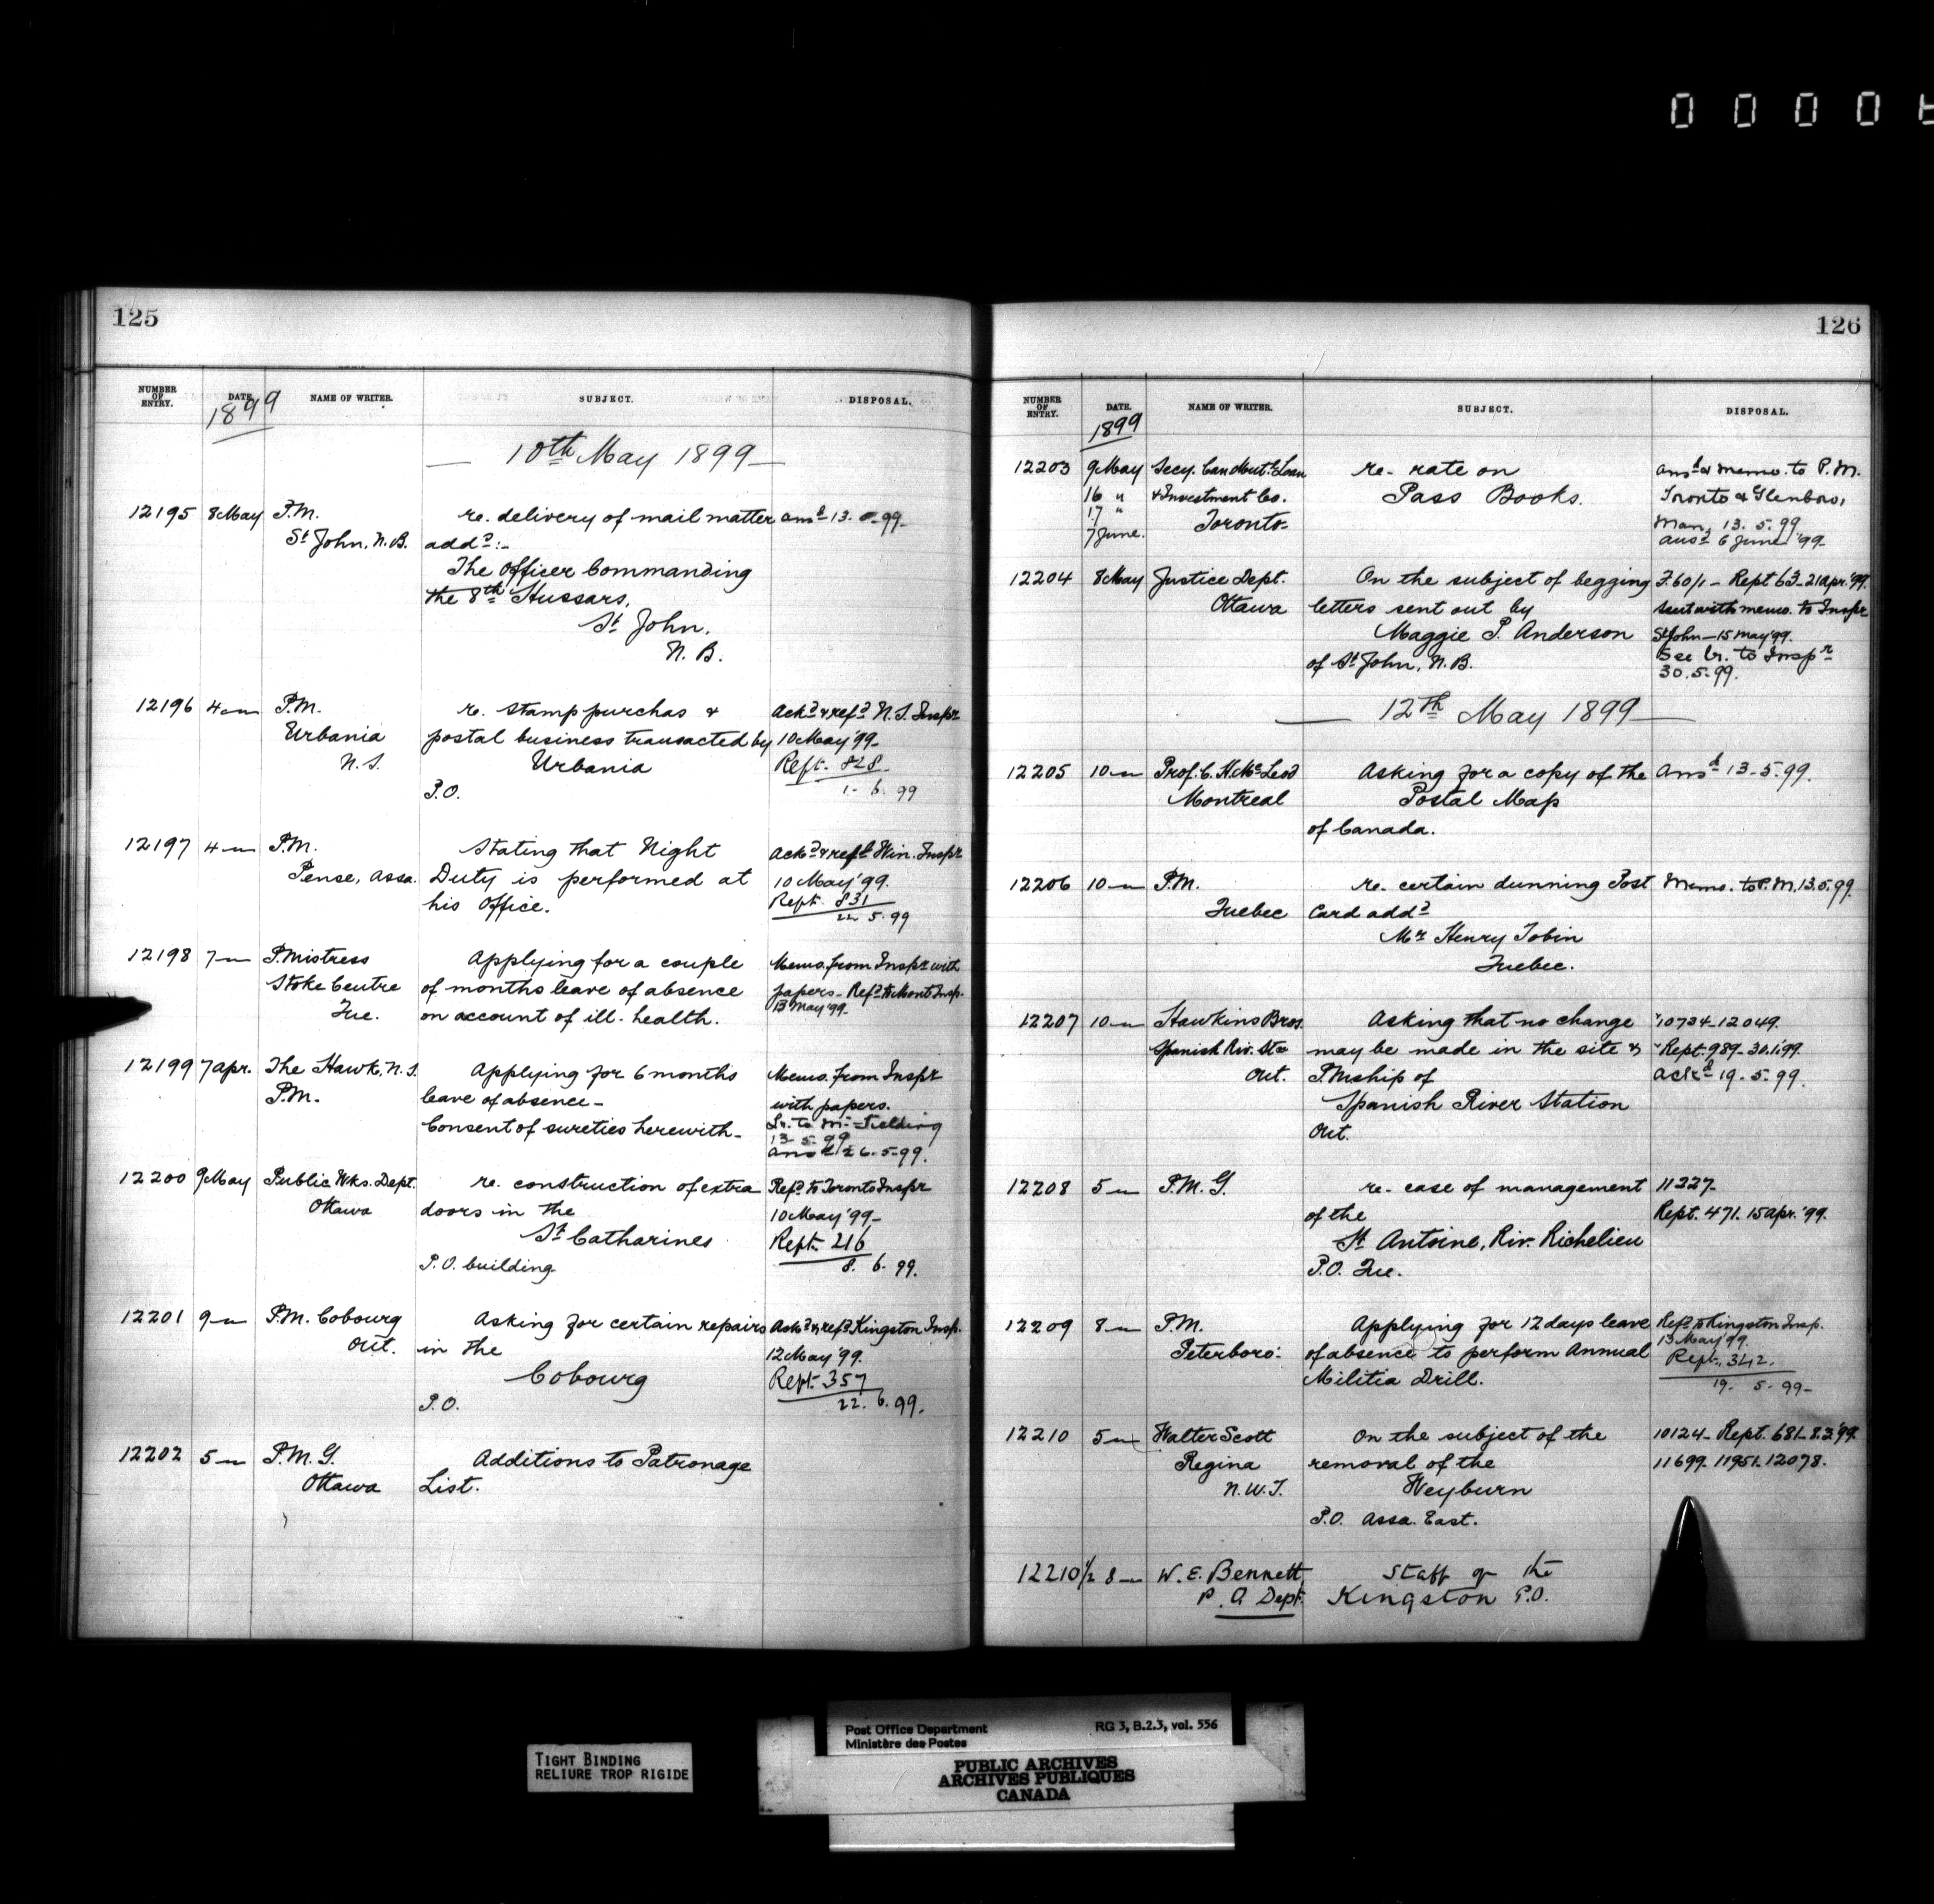 0 0 0 0
125
NUMBER OF ENTRY. DATE. NAME OF WRITER. SUBJECT. DISPOSAL.
1899
10th May 1899
12195 8 May P.M. re. delivery of mail matter ansd 13. 5. 99.
St John, N.B. addd:-
The Officer Commanding
the 8th Hussars,
St John,
N. B.
12196 4 " P.M. re. stamp purchas & Ackd & refd N.S. Inspr
Urbania postal business transacted by 10 May '99-
N.S. Urbania Rept. 828.
P.O. 1- 6. 99
12197 4 " P.M. Stating that Night Ackd & refd Win. Inspr
Pense, Assa. Duty is performed at 10 May '99.
his office. Rept. 831
22 5. 99
12198 7 " P.Mistress Applying for a couple Memo. from Inspr with
Stoke Centre of months leave of absence papers- Refd to Mont Insp.
Que. on account of ill-health. 13 May '99-
12199 7 Apr. The Hawk, N.S. Applying for 6 months Memo. from Inspr
P.M. leave of absence- with papers.
Consent of sureties herewith- Lr. to Mr Fielding
13- 5. 99
ansd 26-5-99.
12200 9 May Public Wks. Dept. re. construction of extra Refd to Toronto Inspr
Ottawa doors in the 10 May '99-
St Catharines Rept. 216
P.O. building 8. 6. 99.
12201 9 " P.M. Cobourg Asking for certain repairs Ackd & refd Kingston Insp.
Ont. in the 12 May '99.
Cobourg Rept. 357
P.O. 22. 6. 99.
12202 5 " P.M.G. Additions to Patronage
Ottawa List.
126
NUMBER OF ENTRY. DATE. NAME OF WRITER. SUBJECT. DISPOSAL.
1899
12203 9 May Secy. Can. Loan re- rate on ansd & memo. to P.M.
16 " & Investment Co. Pass Books. Toronto & Glenboro,
17 " Toronto- Man. 13. 5. 99
7 June. ansd 6 June '99-
12204 8 May Justice Dept. On the subject of begging F.60/1- Rept 63-21 Apr. '99.
Ottawa letters sent out by sent with memo. to Inspr
Maggie P. Anderson St John-15 May '99.
of St John, N.B. See lr. to Inspr
30.5.99.
12th May 1899
12205 10 " Prof. C. H. McLeod Asking for a copy of the Ansd 13-5.99.
Montreal Postal Map
of Canada.
12206 10 " P.M. re- certain dunning Post Memo. to P.M. 13.5.99.
Quebec Card addd
Mr Henry Tobin
Quebec.
12207 10 " Hawkins Bros. Asking that no change 10734-12049.
Spanish Riv. Stn may be made in the site & Rept. 989-30.1.99.
Ont. P.Mship of ackd 19-5-99.
Spanish River Station
Ont.
12208 5 " P.M.G. re- case of management 11227-
of the Rept. 471. 15 Apr. '99.
St Antoine, Riv. Richelieu
P.O. Que.
12209 8 " P.M. Applying for 12 days leave Refd to Kingston Insp.
Peterboro: of absence to perform Annual 13 May '99.
Militia Drill. Rept. 342.
19- 5-99-
12210 5 " Walter Scott On the subject of the 10124- Rept. 681-8.3.'99.
Regina removal of the 11699. 11951. 12078.
N.W.T. Weyburn
P.O. Assa. East.
12210½ 8 " W. E. Bennett Staff of the
P. O Dept. Kingston P.O.
Post Office Department RG 3, B.2.3, vol. 556
Ministère des Postes
TIGHT BINDING
RELIURE TROP RIGIDE
PUBLIC ARCHIVES
ARCHIVES PUBLIQUES
CANADA